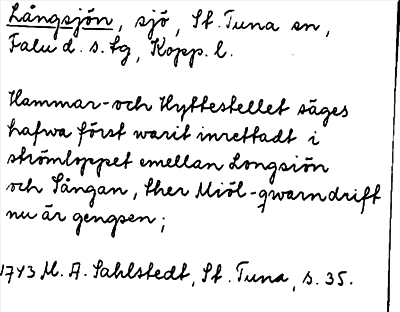 Långsjön, sjö, St. Tuna sn,
Falu d. s. fg, Kopp. l.
Hammar- och Hyttestellet säges
hafwa först warit inrettadt i
strömloppet emellan Longsiön
och Sångan, ther Miöl-qwarndrift
nu är gengsen;
1743 M. A. Sahlstedt, St. Tuna, s. 35.